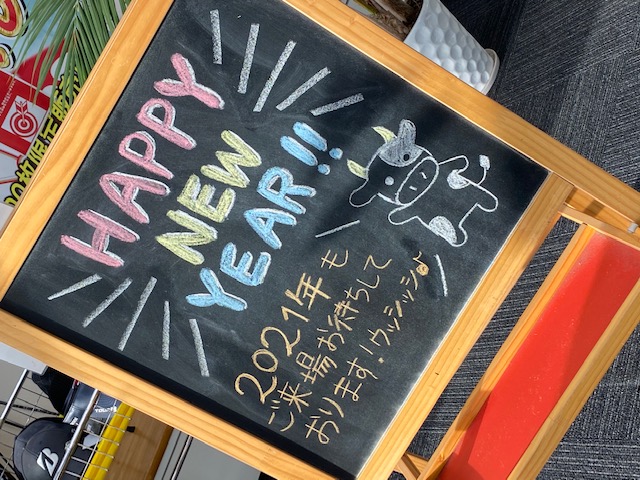 HAPPY
NEW
YEAR!!
2021年も
ご来場お待ちして
おります!ウッシッシッ
B